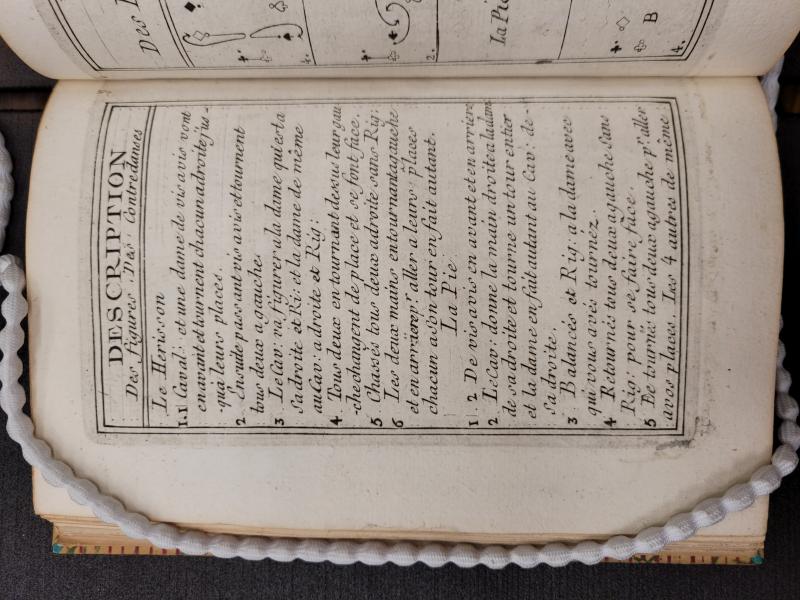 DESCRIPTION
Des Figures Des Contredanses
Le Herisson
1.1 Caval: et une dame de vis avis vont
en avant et tournent chacun adroite jus-
-qua leurs places.
2 Ensuite passant vis avis et tournent
tous deux a gauche.
3 Le Cav: va figurer a la dame qui est a
sa droite et Ri: et la dame de même
au Cav: a droite et Rig:
4 Tous deux en tournant dessus leur gau
-che changent de place et se font face.
5 Chassés tous deux adroite sans Rig:
6 Les deux mains en tournant agauche
et en arriere pr. aller a leurs places
chacun a son tour en fait autant.
La Pie
1 2 De vis avis en avant et en arriere
2 Le Cav: donne la main droite a la dame
de sa droite et tourne un tour entier
et la dame en fait autant au Cav: de
sa droite.
3 Balancés et Rig: a la dame avec
qui vous avés tournéz.
4 Retournés tous deux a gauche sans
Rig: pour se faire face.
5 De tournés tous deux agauche pr. aller
avos places. Les 4 autres de même.
Des
4.
4.
4.
2.
La Pie
4.
B
4.